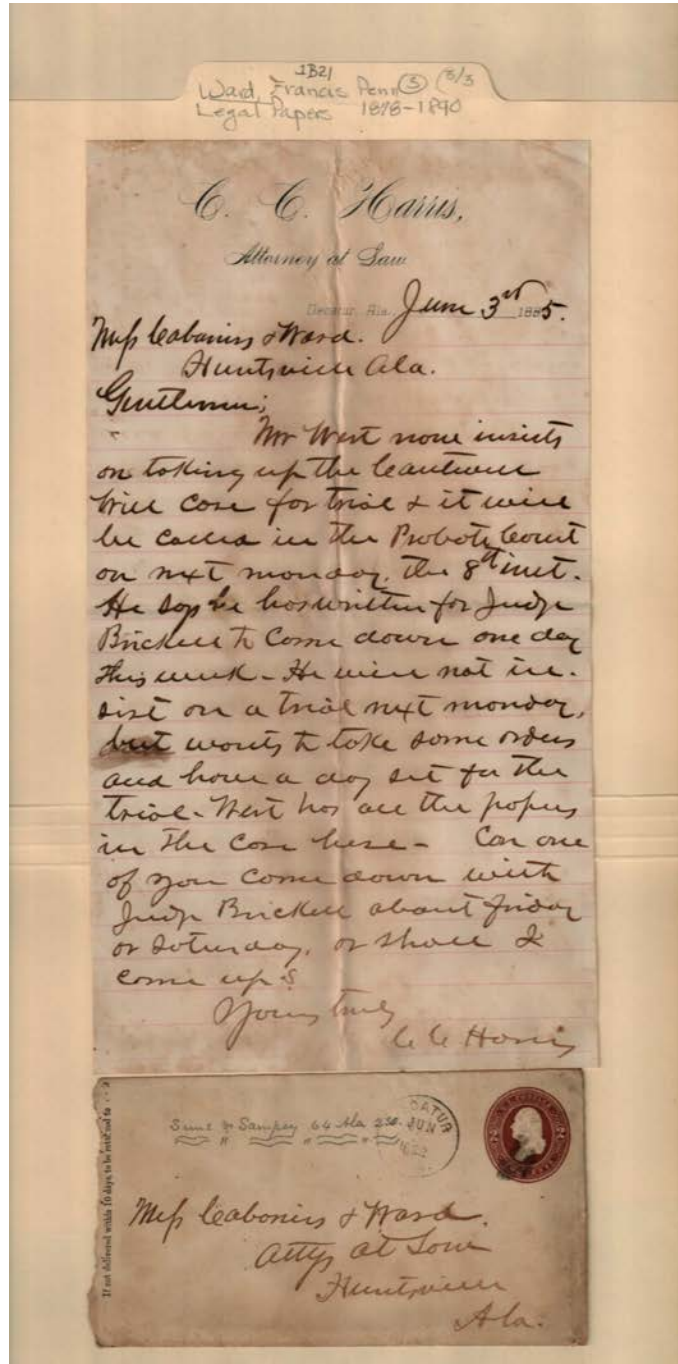 1B21
Ward, Francis Penn ③ (3/3
Legal Papers 1878-1890
C. C. Harris,
Attorney at Law
Decatur, Ala. June 3rd 1885.
Mess Cabaniss & Ward.
Huntsville Ala.
Gentlemen;
Mr West now insists
on taking up the Cantwell
Will case for trial & it will
be called in the Probate Court
on next monday, the 8th inst.
He says he has written for Judge
Brickell to come down one day
this week - He will not in-
sist on a trial next monday,
but wants to take some orders
and have a day set for the
trial - West has all the papers
in the case here - Can one
of you come down with
Judge Brickell about friday
or Saturday, or shall I
come up?
Yours truly
C C Harris
If not delivered within 10 days, to be returned to
& Sampey 64 Ala
DATUR
JUN
Mess Cabaniss & Ward.
Attys at Law
Huntsville
Ala.